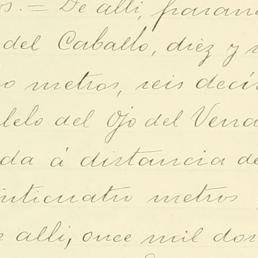 os. = De alli, paran
del Caballo, diez y
o metros, seis decí
lelo del Ojo del Vena
da á distancia de
inticuatro metros
alli, once mil dos